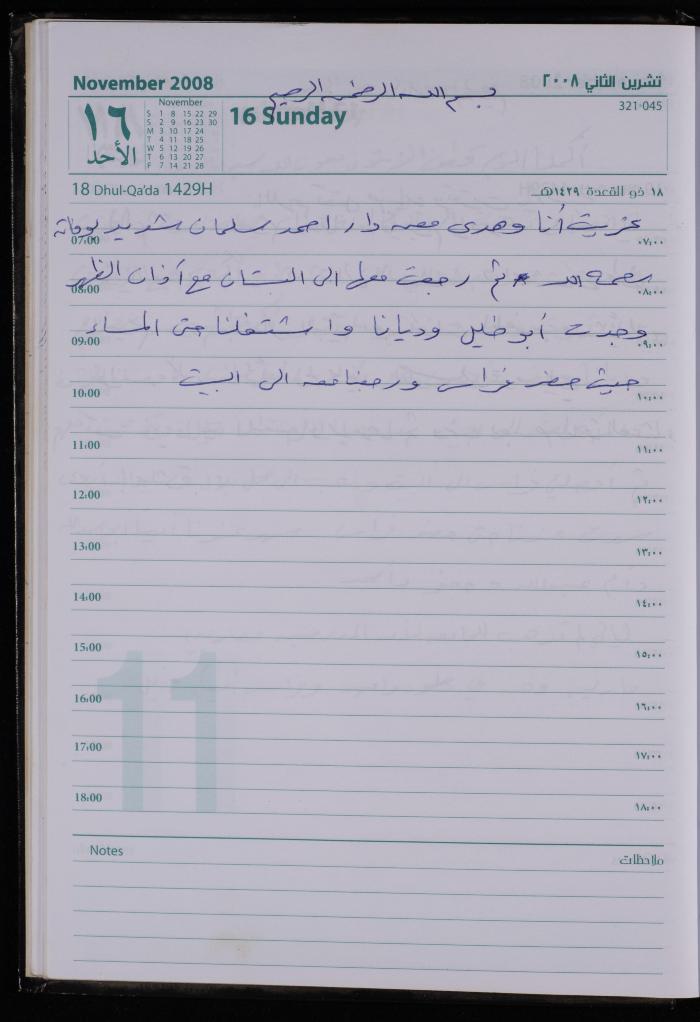 November 2008
تشرين الثاني ٢٠٠٨
بسم الله الرحمن الرحيم
١٦
الأحد
November
S 1 8 15 22 29
S 2 9 16 23 30
M 3 10 17 24
T 4 11 18 25
W 5 12 19 26
T 6 13 20 27
F 7 14 21 28
16 Sunday
321-045
18 Dhul-Qa'da 1429H
١٨ ذو القعدة ١٤٢٩هـ
عزيت أنا وهدى معه دار احمد سلمان شديد بوفاته
07:00 ٠٧:٠٠
رحمه الله ثم رجعت معها الى البستان مع آذان الظهر
08:00 ٠٨:٠٠
وجدت أبو خليل وديانا واشتغلنا حتى المساء
09:00 ٠٩:٠٠
حيث حضر فراس ورجعنا معه الى البيت
10:00 ١٠:٠٠
11:00 ١١:٠٠
12:00 ١٢:٠٠
13:00 ١٣:٠٠
14:00 ١٤:٠٠
15:00 ١٥:٠٠
16:00 ١٦:٠٠
17:00 ١٧:٠٠
18:00 ١٨:٠٠
11
Notes
ملاحظات